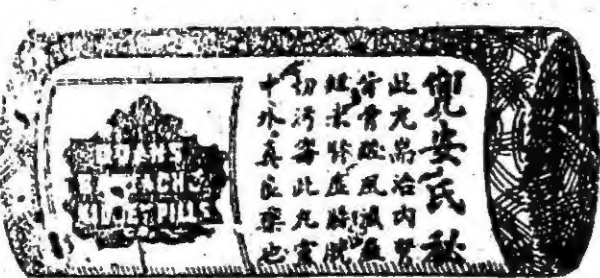 兜安氏秘
此丸耑治內腎
背骨酸風濕
腎虛膀胱
切污毒此丸實
中外真良藥也
DOANS
BACKACHE
KIDNEY PILLS